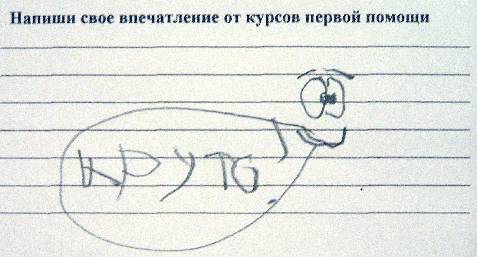 Напиши свое впечатление от курсов первой помощи
КРУТО